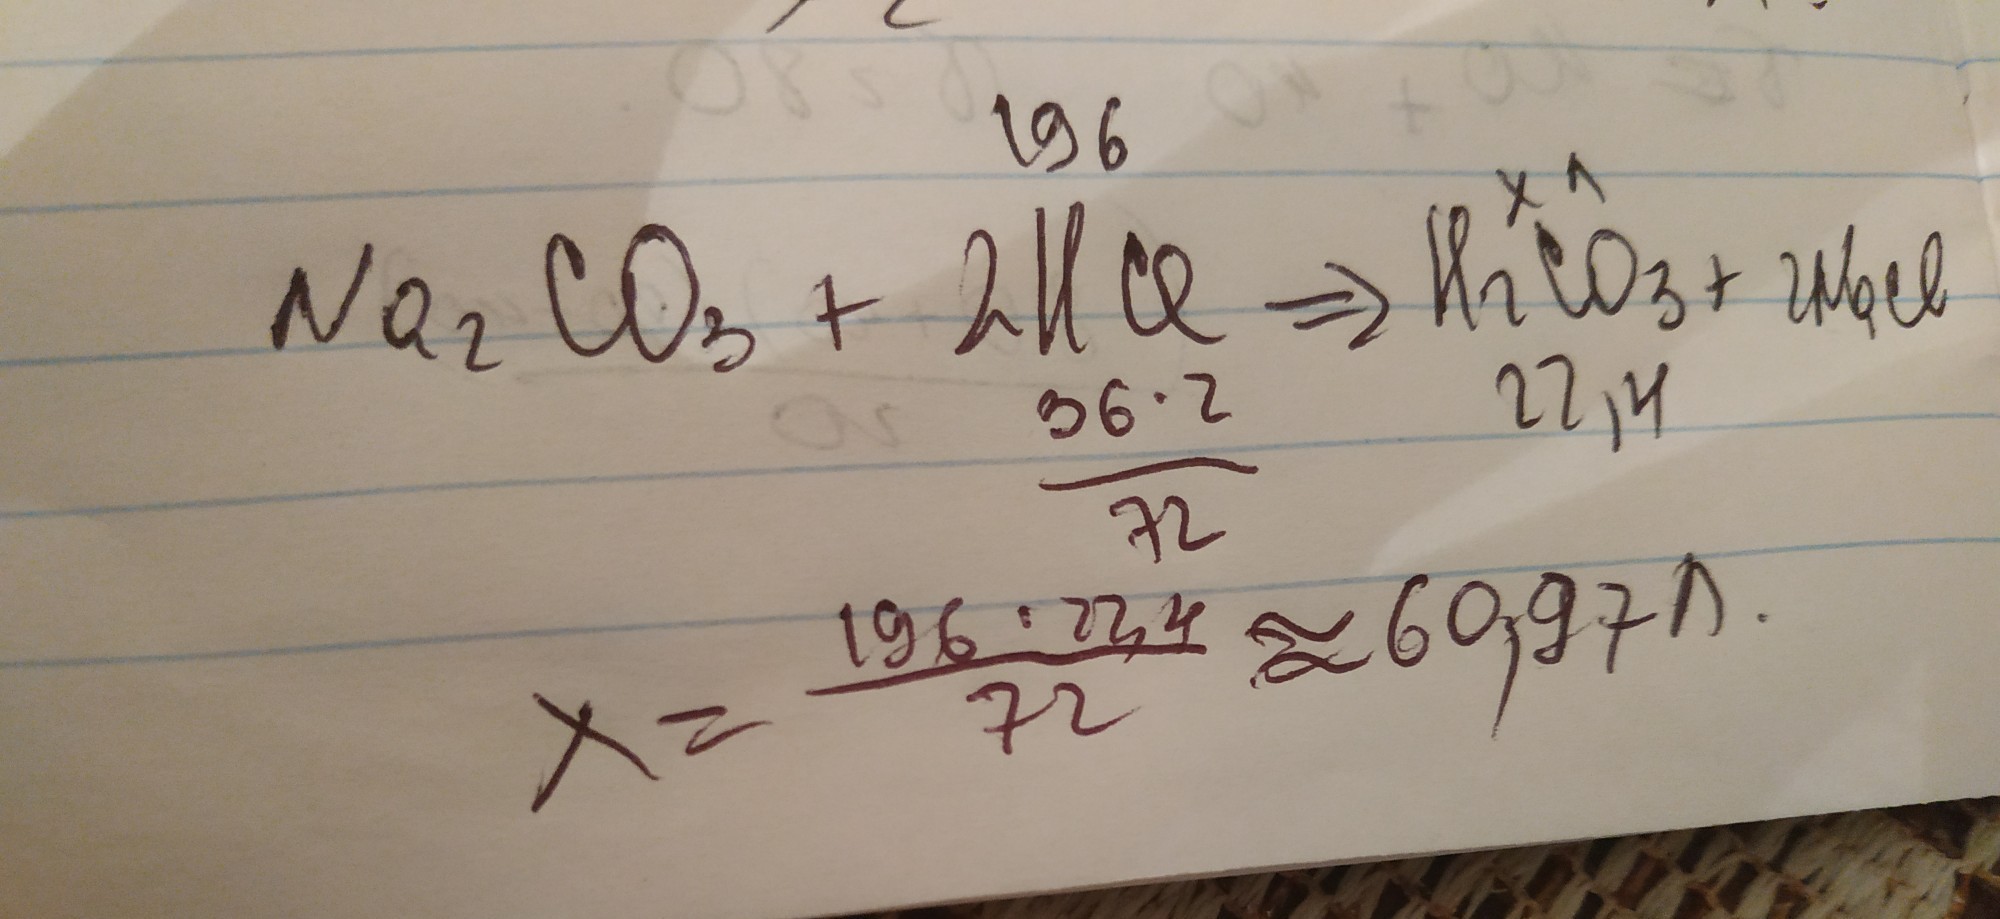 196
х л
Na₂CO₃ + 2HCl ⇒ H₂CO₃ + 2NaCl
36·2 22,4
72
x = 196·22,4 / 72 ≈ 60,97 л.